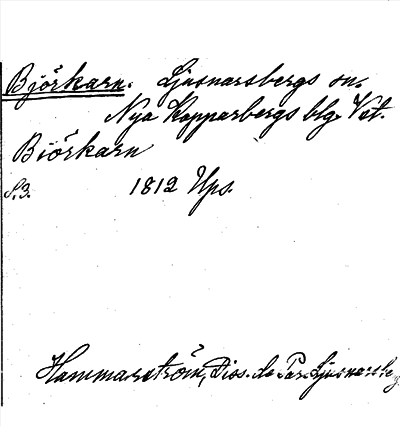 Björkarn. Ljusnarsbergs sn.
Nya Kopparbergs blg. Vst.
Biörkarn
S. 3. 1812 Ups.
Hammarström, Diss. de Par. Ljusnarsberg